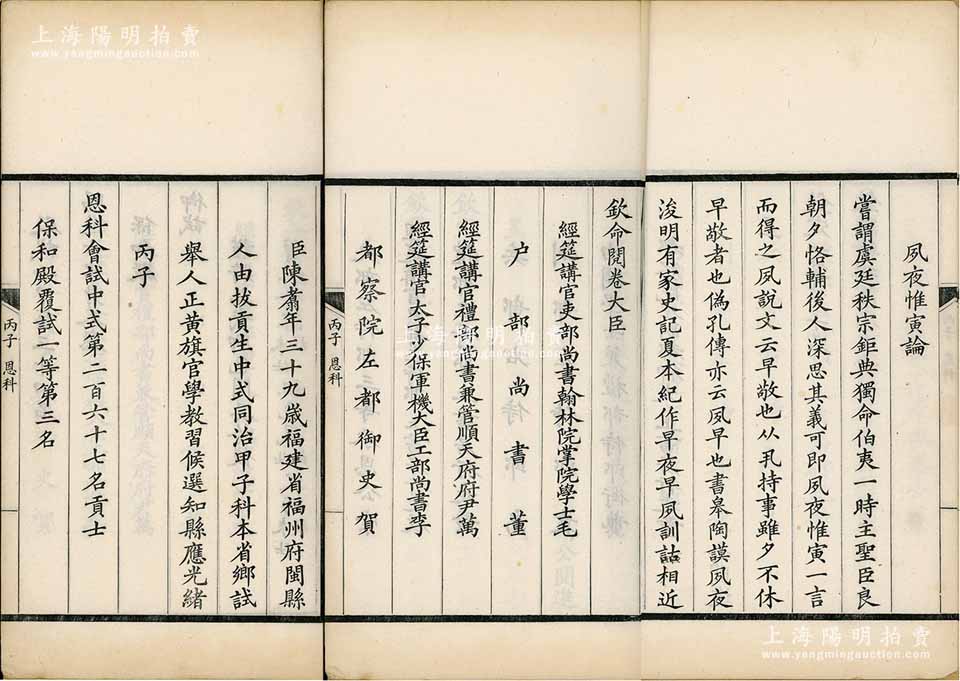 夙夜惟寅論
嘗謂虞廷秩宗鉅典獨命伯夷一時主聖臣良
朝夕恪輔後人深思其義可即夙夜惟寅一言
而得之夙說文云早敬也从丮持事雖夕不休
早敬者也偽孔傳亦云夙早也書皋陶謨夙夜
浚明有家史記夏本紀作早夜早夙訓詁相近
欽命閱卷大臣
經筵講官吏部尚書翰林院掌院學士毛
户部尚書董
經筵講官禮部尚書兼管順天府府尹萬
經筵講官太子少保軍機大臣工部尚書李
都察院左都御史賀
臣陳翥年三十九歲福建省福州府閩縣
人由拔貢生中式同治甲子科本省鄉試
舉人正黃旗官學教習候選知縣應光緒
丙子
恩科會試中式第二百六十七名貢士
保和殿覆試一等第三名
丙子 恩科
丙子 恩科
上海陽明拍賣
www.yangmingauction.com
上海陽明拍賣
www.yangmingauction.com
上海陽明拍賣
www.yangmingauction.com